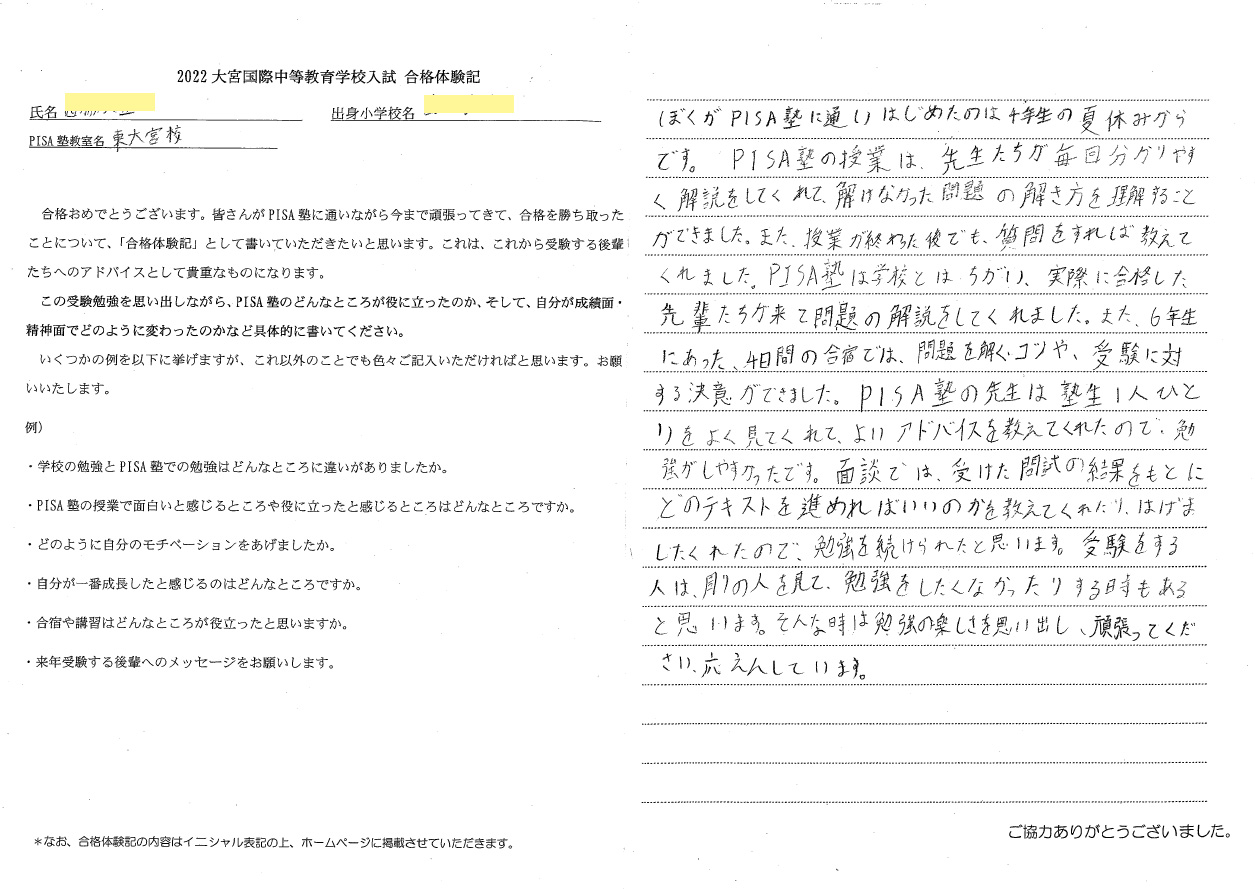 2022 大宮国際中等教育学校入試 合格体験記
氏名
出身小学校名
PISA 塾教室名 東大宮校
合格おめでとうございます。皆さんが PISA 塾に通いながら今まで頑張ってきて、合格を勝ち取った
ことについて、「合格体験記」として書いていただきたいと思います。これは、これから受験する後輩
たちへのアドバイスとして貴重なものになります。
この受験勉強を思い出しながら、PISA 塾のどんなところが役に立ったのか、そして、自分が成績面・
精神面でどのように変わったのかなど具体的に書いてください。
いくつかの例を以下に挙げますが、これ以外のことでも色々ご記入いただければと思います。お願
いいたします。
例）
・学校の勉強と PISA 塾での勉強はどんなところに違いがありましたか。
・PISA 塾の授業で面白いと感じるところや役に立ったと感じるところはどんなところですか。
・どのように自分のモチベーションをあげましたか。
・自分が一番成長したと感じるのはどんなところですか。
・合宿や講習はどんなところが役立ったと思いますか。
・来年受験する後輩へのメッセージをお願いします。
＊なお、合格体験記の内容はイニシャル表記の上、ホームページに掲載させていただきます。
ぼくがPISA塾に通いはじめたのは4年生の夏休みから
です。 PISA塾の授業は、先生たちが毎回分かりやす
く解説をしてくれて、解けなかった問題の解き方を理解すること
ができました。また、授業が終わった後でも、質問をすれば教えて
くれました。PISA塾は学校とはちがい、実際に合格した
先輩たちが来て問題の解説をしてくれました。また、6年生
にあった、4日間の合宿では、問題を解くコツや、受験に対
する決意ができました。PISA塾の先生は塾生1人ひと
りをよく見てくれて、よいアドバイスを教えてくれたので、勉
強がしやすかったです。面談では、受けた問試の結果をもとに
どのテキストを進めればいいのかを教えてくれたり、はげま
したくれたので、勉強を続けられたと思います。受験をする
人は、周りの人を見て、勉強をしたくなかったりする時もある
と思います。そんな時は勉強の楽しさを思い出し、頑張ってくだ
さい、応えんしています。
ご協力ありがとうございました。